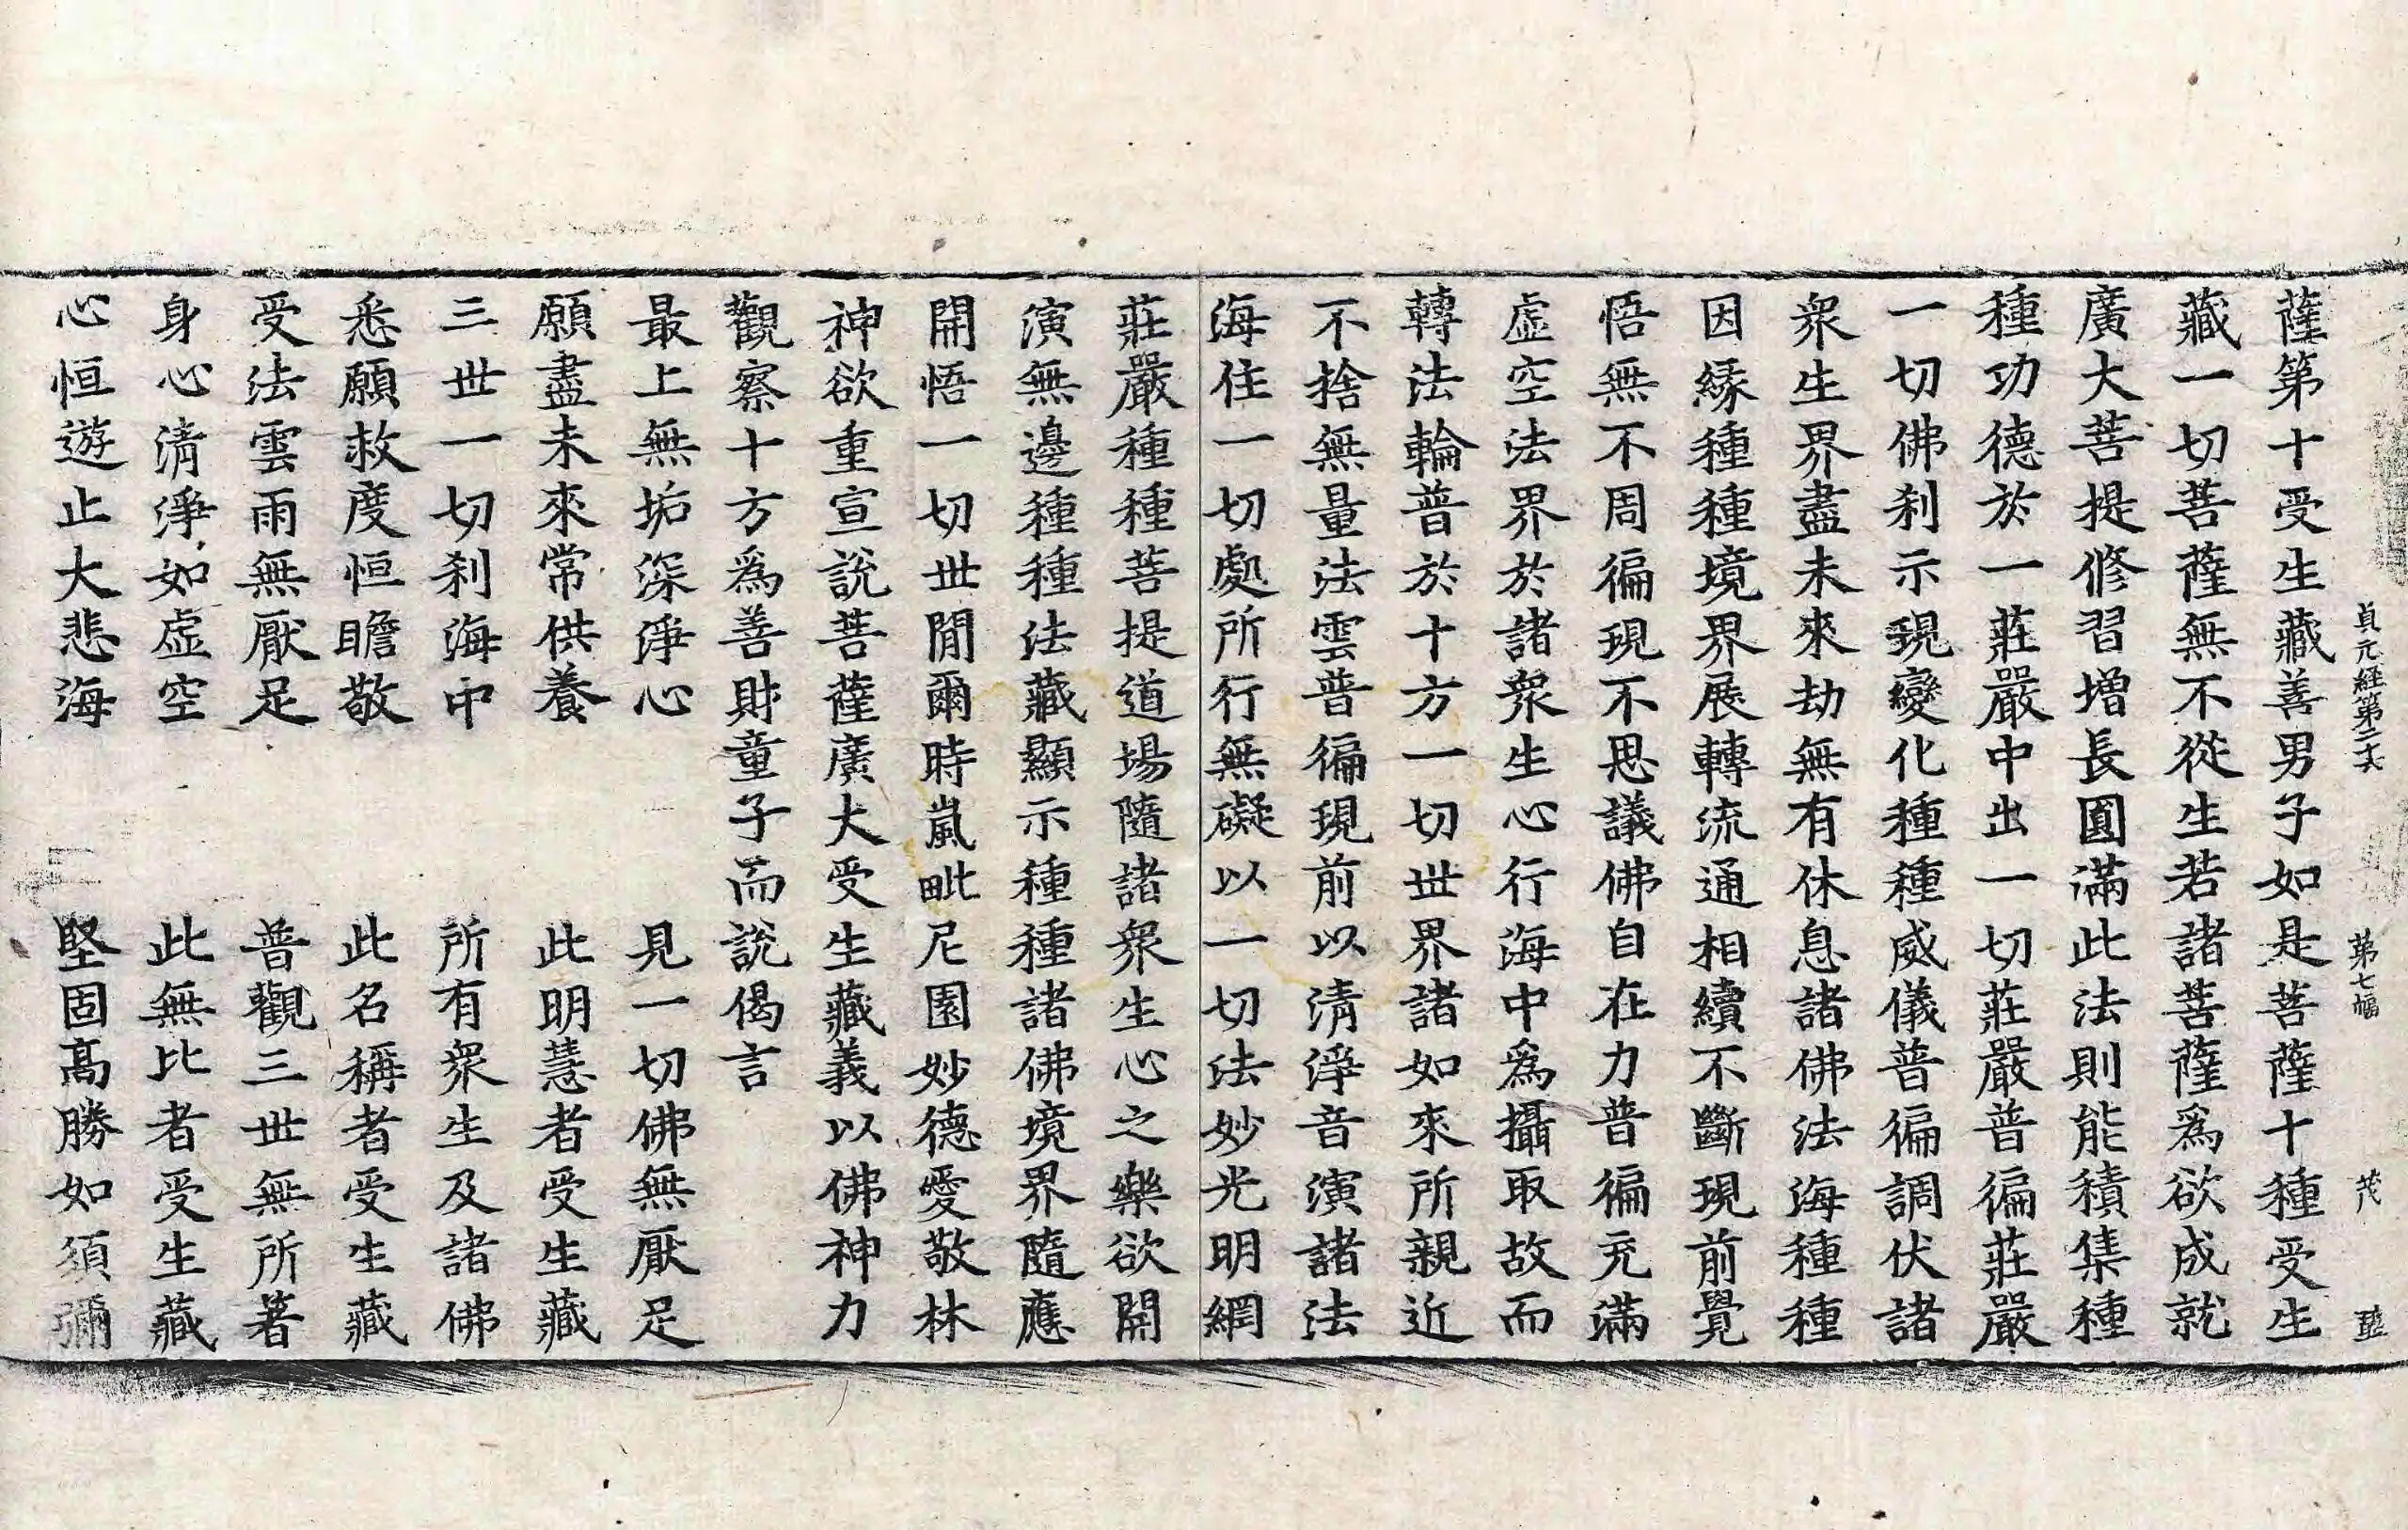 貞元経第二十六 第七幅 茂 𥁃
薩第十受生藏善男子如是菩薩十種受生
藏一切菩薩無不從生若諸菩薩爲欲成就
廣大菩提修習增長圓滿此法則能積集種
種功德於一莊嚴中出一切莊嚴普徧莊嚴
一切佛刹示現變化種種威儀普徧調伏諸
衆生界盡未來劫無有休息諸佛法海種種
因緣種種境界展轉流通相續不斷現前覺
悟無不周徧現不思議佛自在力普徧充滿
虛空法界於諸衆生心行海中爲攝取故而
轉法輪普於十方一切世界諸如來所親近
不捨無量法雲普徧現前以清淨音演諸法
海住一切處所行無礙以一切法妙光明網
莊嚴種種菩提道場隨諸衆生心之樂欲開
演無邊種種法藏顯示種種諸佛境界隨應
開悟一切世閒爾時嵐毗尼園妙德愛敬林
神欲重宣說菩薩廣大受生藏義以佛神力
觀察十方爲善財童子而說偈言
最上無垢深淨心 見一切佛無厭足
願盡未來常供養 此明慧者受生藏
三世一切刹海中 所有衆生及諸佛
悉願救度恒瞻敬 此名稱者受生藏
受法雲雨無厭足 普觀三世無所著
身心清淨如虛空 此無比者受生藏
心恒遊止大悲海 堅固高勝如須彌